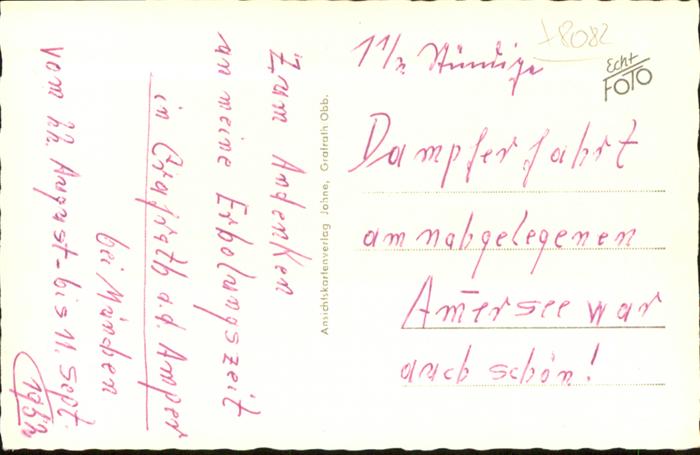 Zum Andenken
an meine Erholungszeit
in Grafrath a.d. Amper
bei München
vom 22. August - bis 11. Sept.
1952
Ansichtskartenverlag Jahne, Grafrath Obb.
18082
Echt
FOTO
1 1/2 Stündige
Dampferfahrt
am nahgelegenen
Amersee war
auch schön!